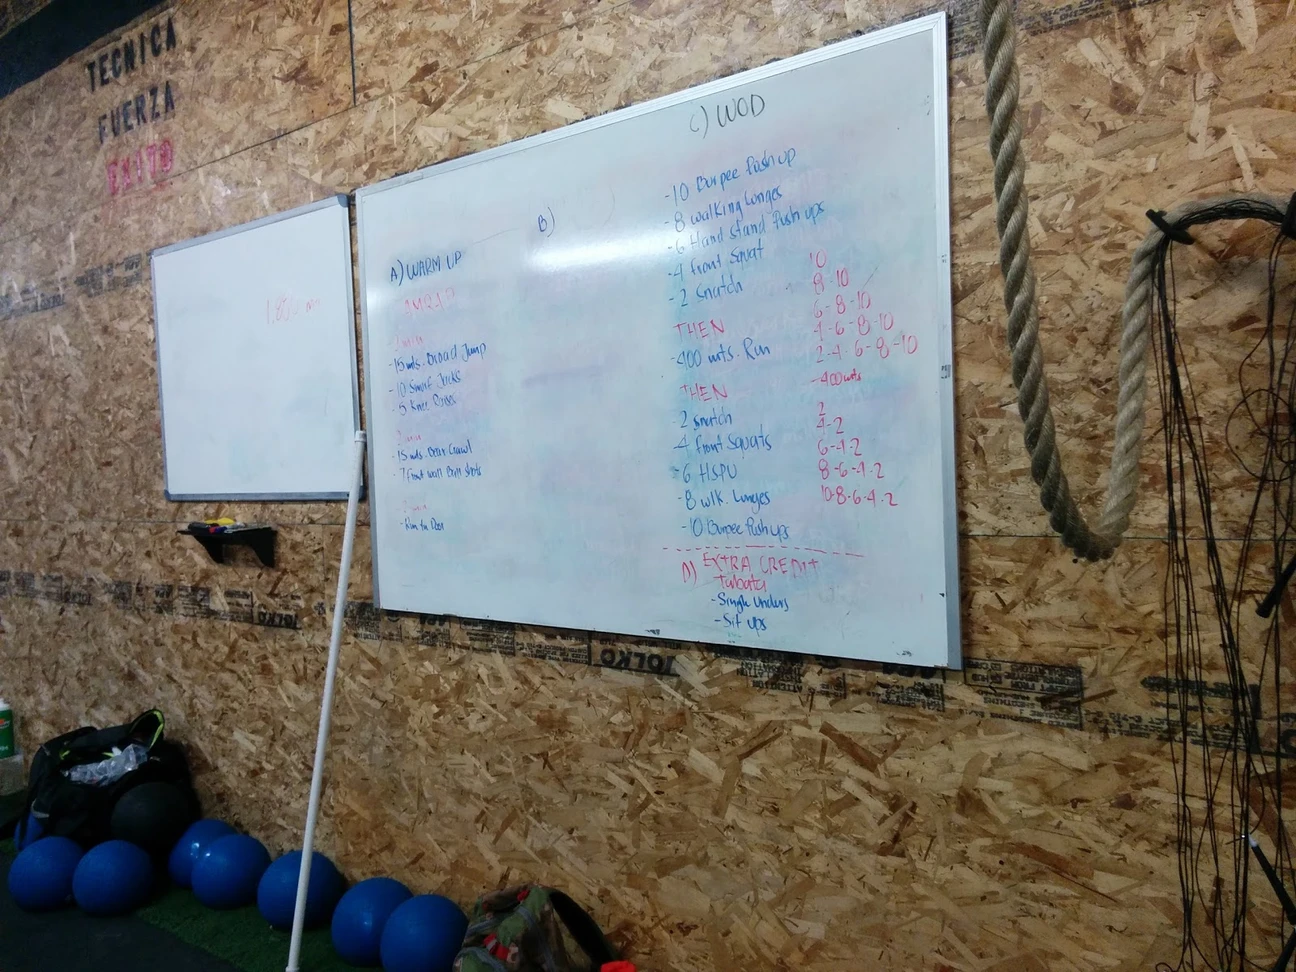 TECNICA
FUERZA
EXITO
A) WARM UP
AMRAP
-15 mts. Broad Jump
-10
-5 Knee
-15 mts. Bear Crawl
-7 front wall
B)
C) WOD
-10 Burpee Push up
-8 walking lunges
-6 Hand stand Push ups
-4 front Squat
-2 Snatch
THEN
-400 mts. Run
THEN
-2 Snatch
-4 front Squats
-6 HSPU
-8 wlk. Lunges
-10 Burpee Push ups
10
8-10
6-8-10
4-6-8-10
2-4-6-8-10
-400mts
2
4-2
6-4-2
8-6-4-2
10-8-6-4-2
D) EXTRA CREDIT
Tabata
-Single Unders
-Sit ups
TOLKO
TOLKO